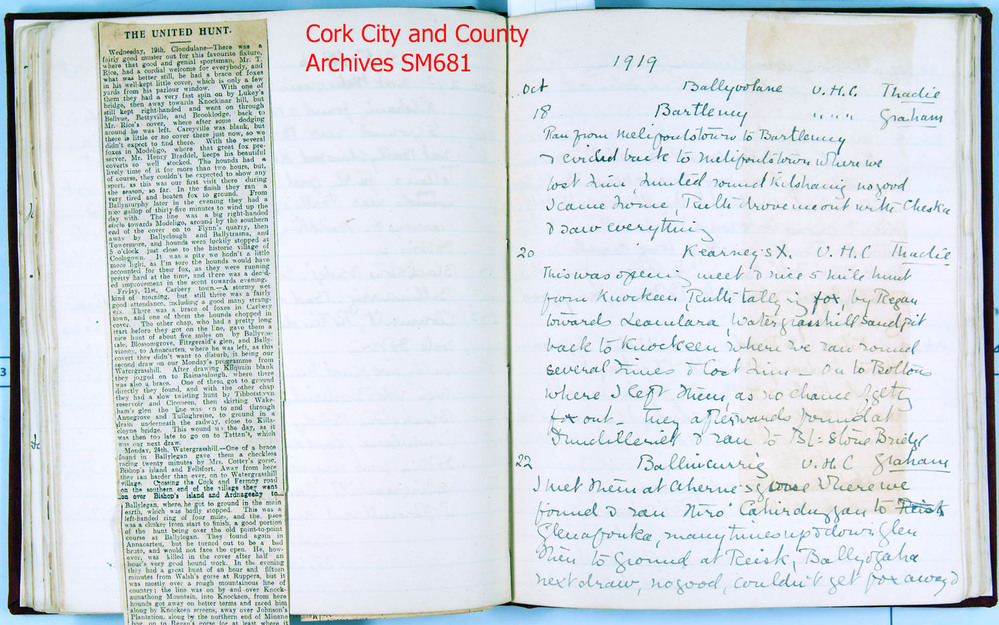 THE UNITED HUNT.
Wednesday, 19th, Clondulane—There was a
fairly good muster out for this favourite fixture,
where that good and genial sportsman, Mr. T.
Rice, had a cordial welcome for everybody, and
what was better still, he had a brace of foxes
in his well-kept little cover, which is only a few
yards from his parlour window. With one of
them they had a very fast spin on by Lukey's
bridge, then away towards Knockinar hill, but
still kept right-handed and went on through
Bellvue, Bettyville, and Brooklodge, back to
Mr. Rice's cover, where after some dodging
around he was left. Careyville was blank, but
there is little or no cover there just now, so we
didn't expect to find there. With the several
foxes in Modeligo, where that great fox pre-
server, Mr. Henry Braddel, keeps his beautiful
coverts so well stocked. The hounds had a
lively time of it for more than two hours, but,
of course, they couldn't be expected to show any
sport, as this was our first visit there during
the season, so far. In the finish they ran a
very tired and beaten fox to ground. From
Ballymurphy later in the evening they had a
nice gallop of thirty-five minutes to wind up the
day with. The line was a big right-handed
circle towards Modeligo, around by the southern
end of the cover on to Flynn's quarry, then
away by Ballyclough and Ballytrasna, and
Towermore, and hounds were luckily stopped at
5 o'clock just close to the historic village of
Coolegown. It was a pity we hadn't a little
more light, as I'm sure the hounds would have
accounted for their fox, as they were running
pretty hard at the time, and there was a decid-
ed improvement in the scent towards evening.
Friday, 21st, Carbery town.—A stormy wet
kind of morning, but still there was a fairly
good attendance, including a good many strang-
ers. There was a brace of foxes in Carbery
town, and one of them the hounds chopped in
cover. The other chap, who had a pretty long
start before they got on the line, gave them a
nice hunt of about five miles on by Ballyvue-
tale, Blossomgrove, Fitzgerald's glen, and Bally-
vinony, to Annacarten, where he was left, as this
covert they didn't want to disturb, it being our
second draw on our Monday's programme from
Watergrasshill. After drawing Kilquain blank
they jogged on to Rainasalough, where there
was also a brace. One of these got to ground
directly they found, and with the other chap
they had a slow twisting hunt by Tibbotstown
reservoir and Cloneens, then skirting Wake-
ham's glen the line was on to and through
Annegrove and Tullaghreine, to ground in a
drain underneath the railway, close to Killa-
cloyne bridge. This wound up the day, as it
was then too late to go on to Tattan's, which
was our next draw.
Monday, 24th, Watergrasshill.—One of a brace
found in Ballylegan gave them a checkless
racing twenty minutes by Mrs. Cotter's gorse,
Bishop's island and Fellsfort. Away from here
they ran harder than ever, on to Watergrasshill
village. Crossing the Cork and Fermoy road
on the southern end of the village they went
on over Bishop's island and Ardnageehy to
Ballylegan, where he got to ground in the main
earth, which was badly stopped. This was a
left-handed ring of four miles, and the pace
was a clinker from start to finish, a good portion
of the hunt being over the old point-to-point
course at Ballylegan. They found again in
Annacarten, but he turned out to be a bad
brute, and would not face the open. He, how-
ever, was killed in the cover after half an
hour's very good hound work. In the evening
they had a great hunt of an hour and fifteen
minutes from Walsh's gorse at Ruppers, but it
was mostly over a rough mountainous line of
country; the line was on by and over Knock-
aunathong Mountain, into Knockeen, from here
hounds got away on better terms and raced him
along by Knockeen screens, away over Johnson's
Plantation, along by the northern end of Minane
Cork City and County
Archives SM681
1919
Oct Ballyvolane U.H.C. Thadie
18 Bartlemy " " " Graham
Ran from Melifontstown to Bartlemy
& circled back to Melifontstown where we
lost him, hunted round Kilshanig no good
I came home, Ruth drove me out with Cheskie
& saw everything
20 Kearney's X. U.H.C Thadie
This was opening meet & nice 5 mile hunt
from Knockeen, Ruth tally ing fox, by Regan
towards Leamlara Watergrasshill Sandpit
back to Knockeen where we ran round
several times & lost him – on to Bottom
where I left them as no chance of getg
fox out – they afterwards found at
Dundilleriet & ran to Bl: Stone Bridge
22 Ballincurrig U.H.C Graham
I met them at Aherne's gorse where we
found & ran thro' Cahirduggan to Reisk
Glenafonka, many times up & down glen
then to ground at Reisk, Ballydgaha
next draw, no good, couldn't get fox away &